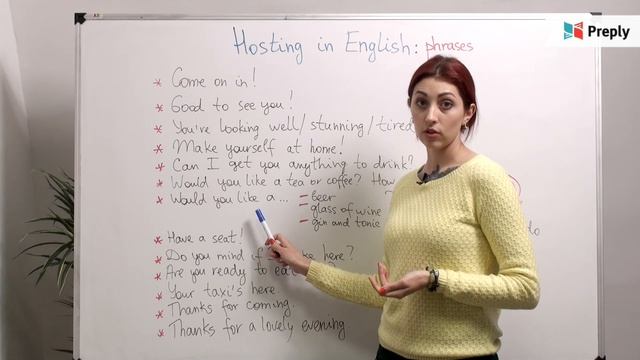 Preply
Hosting in English: phrases
* Come on in!
* Good to see you!
* You're looking well/stunning/tired
* Make yourself at home!
* Can I get you anything to drink?
* Would you like a tea or coffee? How
* Would you like a ... – beer
– glass of wine
– gin and tonic
do
* Have a seat!
* Do you mind if here?
* Are you ready to eat
* Your taxi's here
* Thanks for coming.
* Thanks for a lovely evening